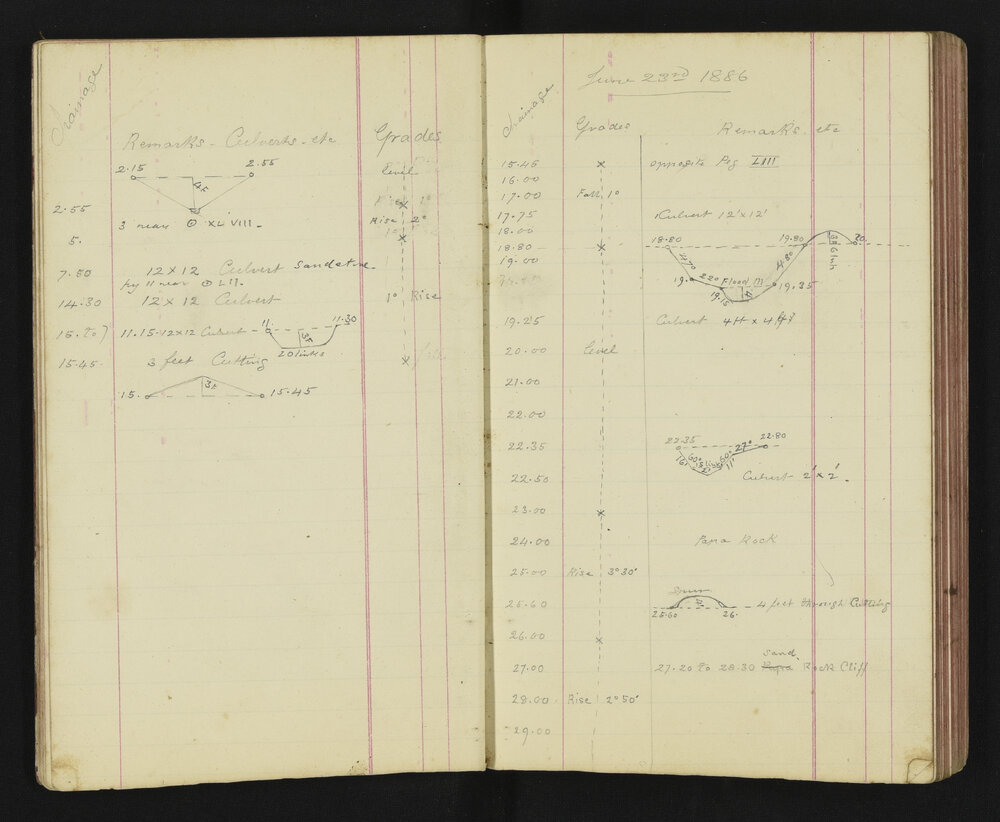 Drainage
Remarks - Culverts - etc Grades
2.15 2.55 Level
4F
2.55 Rise 1°
3 near ⊙ XLVIII. Rise 2°
5.
7.50 12 x 12 Culvert Sandstone
near ⊙ LII.
14.30 12 x 12 Culvert 1° Rise
15. to 11.15. 12x12 Culvert 11. 11.30
3F
20 links
15.45. 3 feet Cutting
15. 3F 15.45
June 23rd 1886
Drainage Grades Remarks etc
15.45 opposite Peg LIII
16.00
17.00 Fall 1°
17.75 Culvert 12'x12'
18.00
18.80 18.80 19.80 20.
19.00 47° 48°
19. 22° Flood 19.35
19.15
19.25 Culvert 4ft x 4ft
20.00 Level
21.00
22.00
22.35 22.35 22.80
60° 60° 27°
22.50 Culvert 2'x2'.
23.00
24.00 Papa Rock
25.00 Rise 3°30'
25.60 25.60 26. 4 feet through Cutting
26.00
Sand
27.00 27.20 to 28.30 Papa Rock Cliff
28.00 Rise 2°50'
29.00